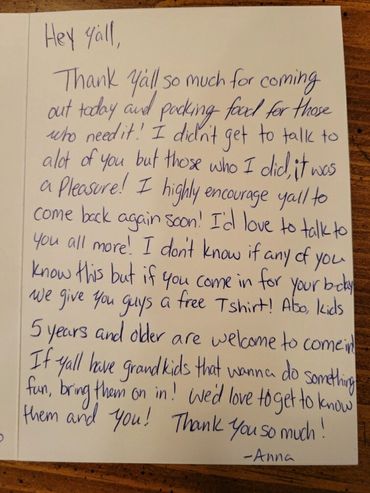 Hey Y'all,
Thank Y'all so much for coming
out today and packing food for those
who need it! I didn't get to talk to
alot of you but those who I did, it was
a Pleasure! I highly encourage yall to
come back again soon! I'd love to talk to
you all more! I don't know if any of you
know this but if you come in for your b-day
we give you guys a free Tshirt! Also, kids
5 years and older are welcome to come in!
If yall have grandkids that wanna do something
fun, bring them on in! We'd love to get to know
them and you! Thank you so much!
-Anna